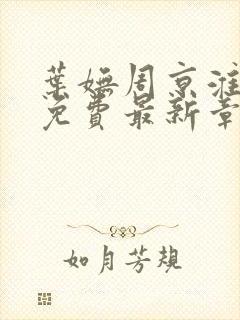 葉嫵周京淮
免費最新章
如月芳規